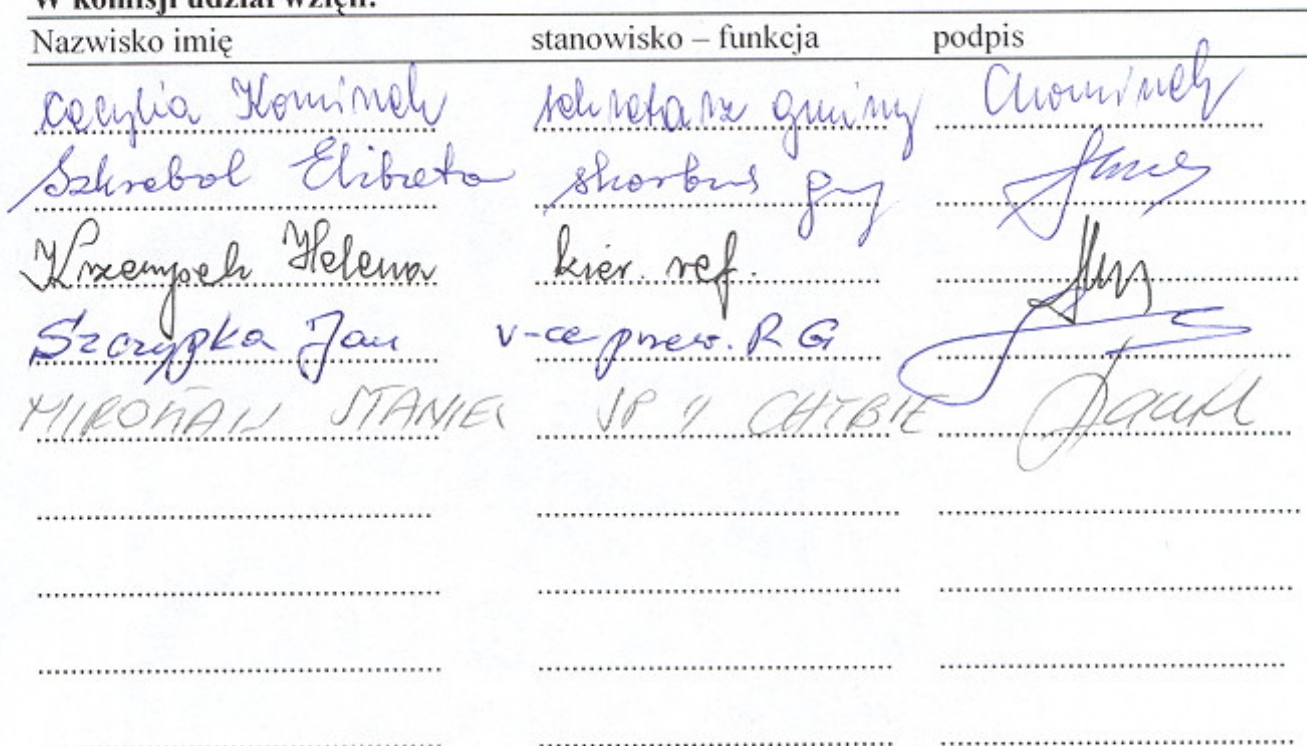 W komisji udział wzięli:
Nazwisko imię stanowisko – funkcja podpis
Cecylia Kominek sekretarz gminy CKominek
Szkrobol Elżbieta skarbnik gminy
Krzempek Helena kier. ref.
Szczypka Jan v-ce przew. R G
STANIEK SP 1